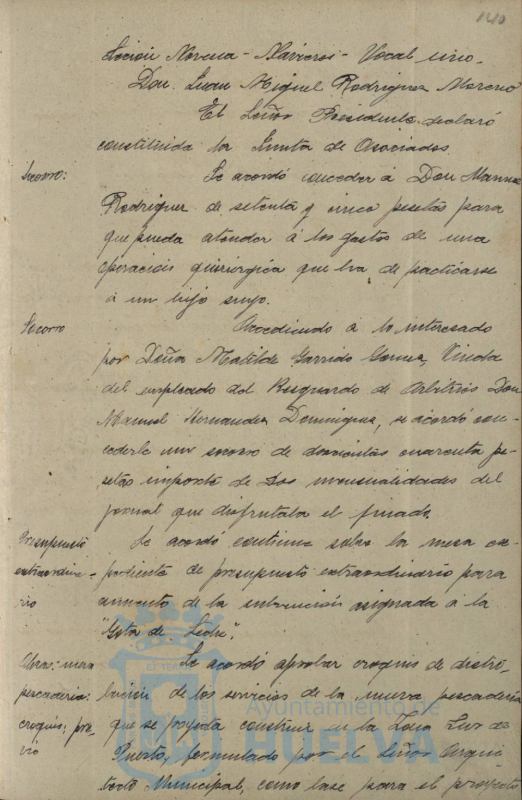 140
Sección Novena - Navieros - Vocal uno.
Don Juan Miguel Rodriguez Moreno
El Señor Presidente declaró
constituida la Junta de Asociados
Socorro:
Se acordó conceder á Don Manuel
Rodriguez de setenta y cinco pesetas para
que pueda atender á los gastos de una
operación quirúrgica que ha de practicarse
á un hijo suyo.
Socorro
Accediendo á lo interesado
por Doña Matilde Garrido Gomez, Viuda
del empleado del Resguardo de Arbitrios Don
Manuel Hernandez Dominguez, se acordó con-
cederle un socorro de doscientas cuarenta pe-
setas importe de dos mensualidades del
jornal que disfrutaba el finado.
Presupuesto
extraordina-
rio
Se acordó continue sobre la mesa ex-
pediente de presupuesto extraordinario para
aumento de la subvención asignada á la
"Gota de Leche".
Obra: nueva
pescaderia:
croquis: pre-
vio
Se acordó aprobar croquis de distri-
bución de los servicios de la nueva pescaderia
que se proyecta construir en la Zona Sur del
Puerto, formulado por el Señor Arqui-
tecto Municipal, como base para el proyecto
Ayuntamiento de
HUELVA